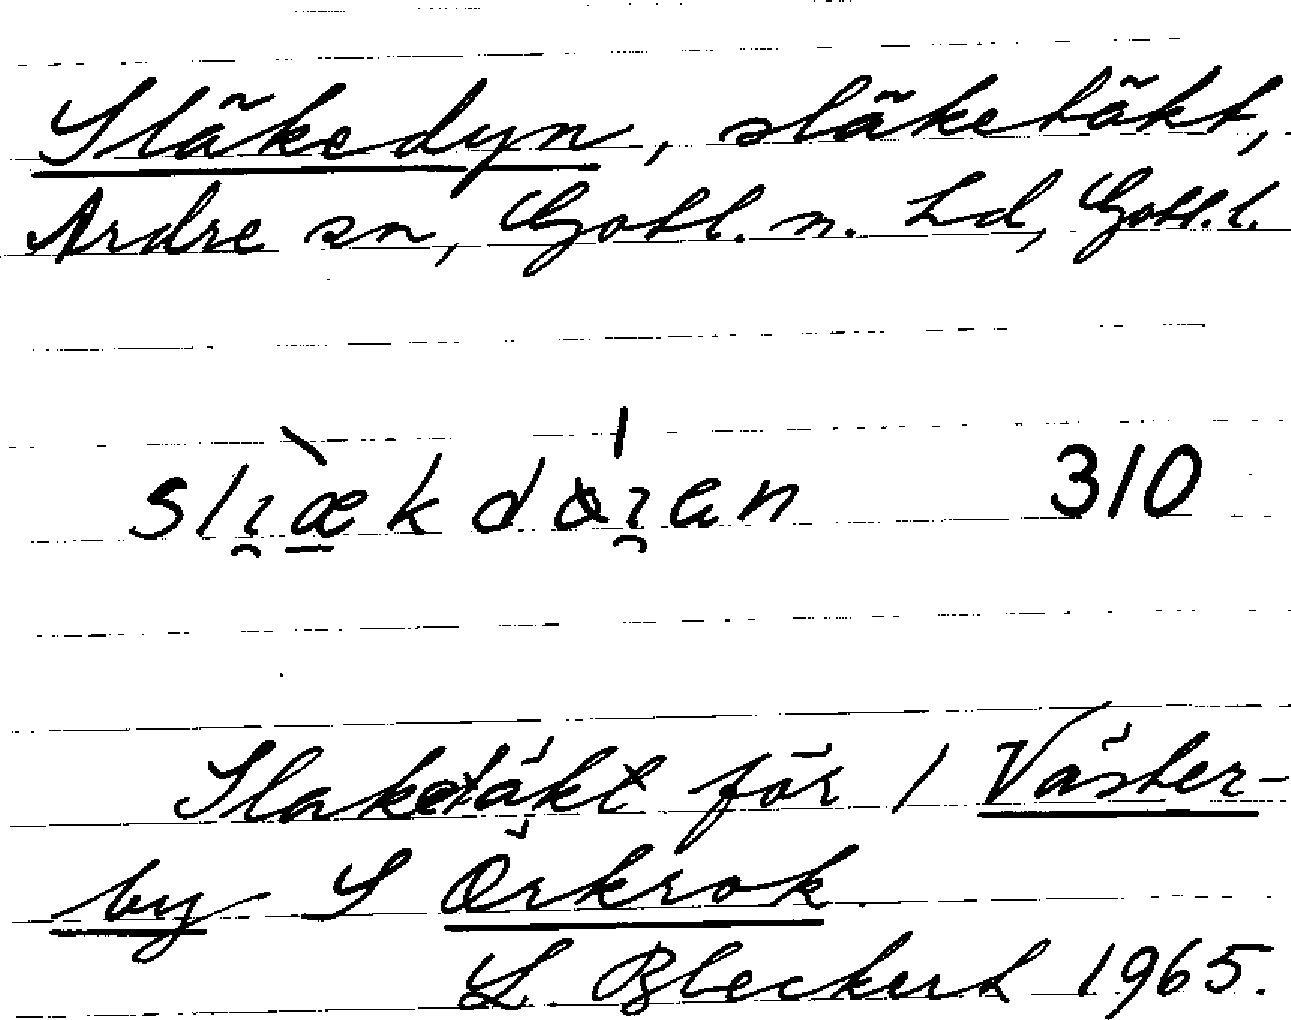 Släkedyn, släketäkt,
Ardre sn, Gotl. n. Ld, Gotl. l.
slı̯æ̀kdɑ́ı̯en 310
Slaketäkt för 1 Väster-
by S Örkrok
L. Bleckert 1965.